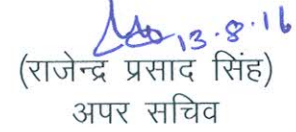 13.8.16
(राजेन्द्र प्रसाद सिंह)
अपर सचिव